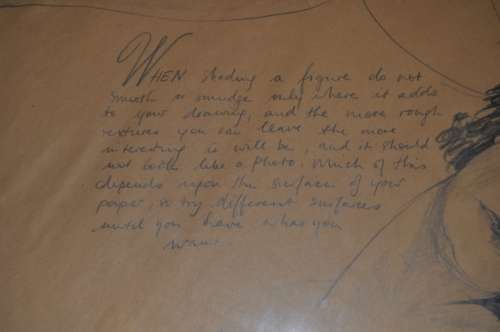 WHEN shading a figure do not
smooth or smudge only where it adds
to your drawing, and the more rough
textures you can leave the more
interesting it will be, and it should
not look like a photo. Much of this
depends upon the surface of your
paper, so try different surfaces
until you have what you
want